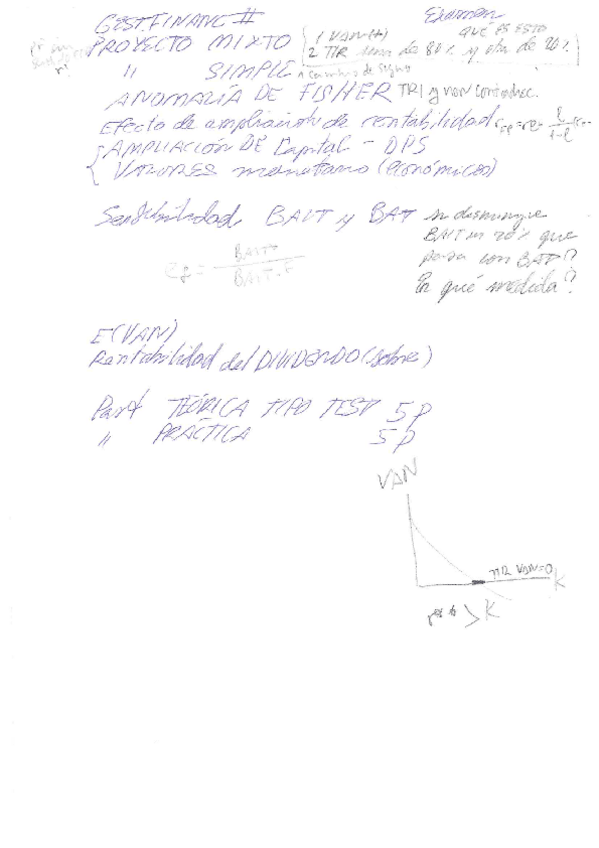 GEST. FINANC #
Examen
QUÉ ES ESTO
PROYECTO MIXTO { 1 VAN (+)
2 TIR una de 80% y otra de 20% }
" SIMPLE 1 cambio de signo
ANOMALÍA DE FISHER TRI y van
Efecto de ampliación de rentabilidad
{ AMPLIACIÓN DE Capital - DPS
VALORES monetario (económicos)
Sensibilidad BAIT y BAT si disminuye
BAIT un 20% que
pasa con BAT?
En qué medida?
E(VAN)
Rentabilidad del DIVIDENDO (sobre)
Part TEÓRICA TIPO TEST 5 p
" PRÁCTICA 5 p
VAN
TIR VAN=0 K
> K